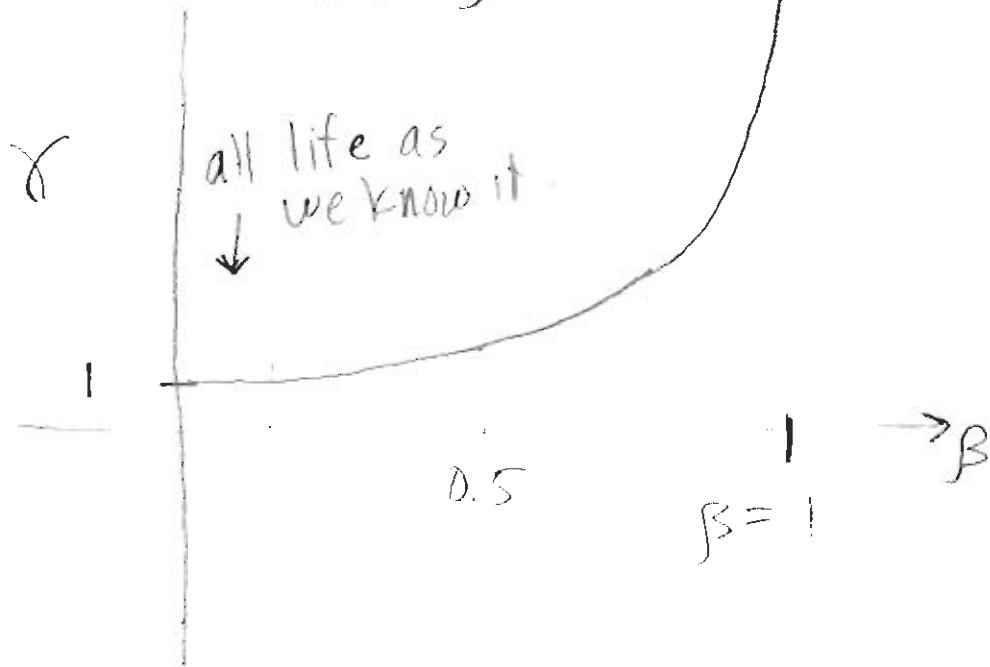 γ
all life as
we know it
↓
1
→ β
0.5
1
β = 1